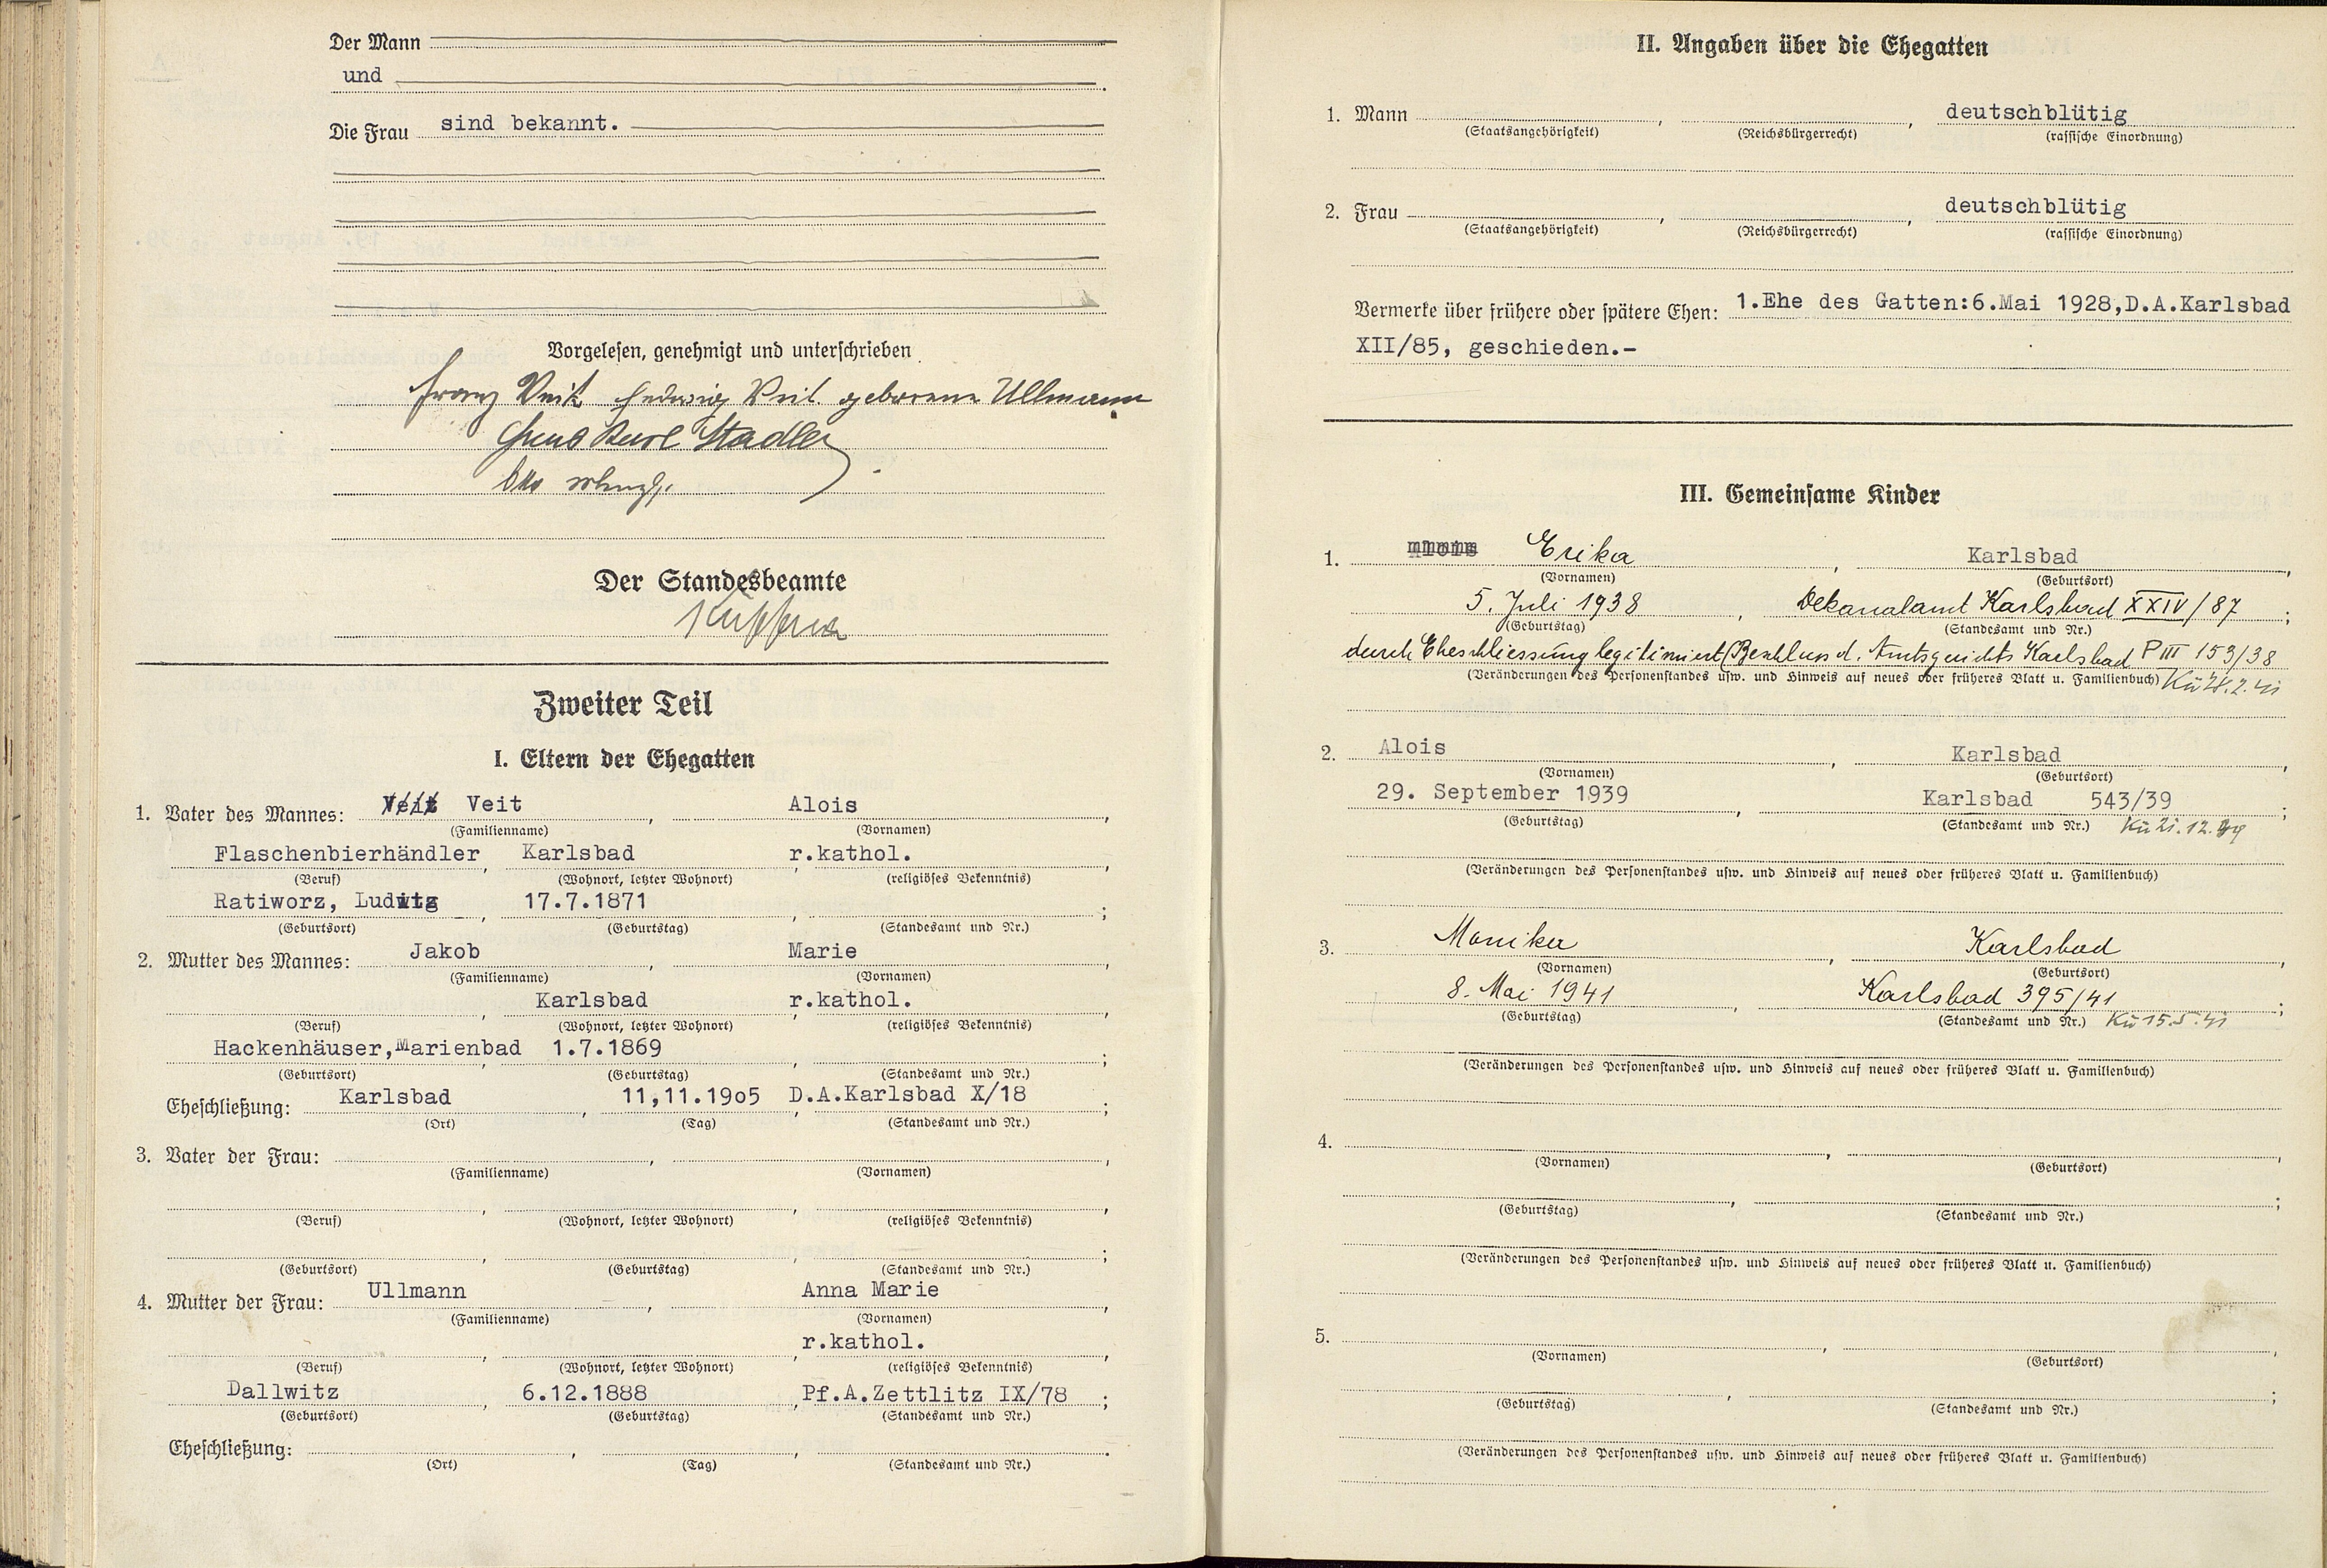 Der Mann
und
Die Frau sind bekannt.
Vorgelesen, genehmigt und unterschrieben
Franz Veit Hedwig Veit geborene Ullmann
Karl Stadler
Der Standesbeamte
Zweiter Teil
I. Eltern der Ehegatten
1. Vater des Mannes: Veit Veit, Alois,
(Familienname) (Vornamen)
Flaschenbierhändler, Karlsbad, r.kathol.,
(Beruf) (Wohnort, letzter Wohnort) (religiöses Bekenntnis)
Ratiworz, Luditz, 17.7.1871, ;
(Geburtsort) (Geburtstag) (Standesamt und Nr.)
2. Mutter des Mannes: Jakob, Marie,
(Familienname) (Vornamen)
, Karlsbad, r.kathol.,
(Beruf) (Wohnort, letzter Wohnort) (religiöses Bekenntnis)
Hackenhäuser,Marienbad, 1.7.1869, ;
(Geburtsort) (Geburtstag) (Standesamt und Nr.)
Eheschließung: Karlsbad, 11,11.19o5, D.A.Karlsbad X/18;
(Ort) (Tag) (Standesamt und Nr.)
3. Vater der Frau: , ,
(Familienname) (Vornamen)
(Beruf) (Wohnort, letzter Wohnort) (religiöses Bekenntnis)
(Geburtsort) (Geburtstag) (Standesamt und Nr.)
4. Mutter der Frau: Ullmann, Anna Marie,
(Familienname) (Vornamen)
, , r.kathol.,
(Beruf) (Wohnort, letzter Wohnort) (religiöses Bekenntnis)
Dallwitz, 6.12.1888, Pf.A.Zettlitz IX/78;
(Geburtsort) (Geburtstag) (Standesamt und Nr.)
Eheschließung: , , .
(Ort) (Tag) (Standesamt und Nr.)
II. Angaben über die Ehegatten
1. Mann , , deutschblütig
(Staatsangehörigkeit) (Reichsbürgerrecht) (rassische Einordnung)
2. Frau , , deutschblütig
(Staatsangehörigkeit) (Reichsbürgerrecht) (rassische Einordnung)
Vermerke über frühere oder spätere Ehen: 1.Ehe des Gatten:6.Mai 1928,D.A.Karlsbad
XII/85, geschieden.-
III. Gemeinsame Kinder
1. Alois Erika, Karlsbad,
(Vornamen) (Geburtsort)
5. Juli 1938, Dekanalamt Karlsbad XXIV/87;
(Geburtstag) (Standesamt und Nr.)
durch Eheschliessung legitimiert (Beschluss d. Amtsgerichts Karlsbad P III 153/38
(Veränderungen des Personenstandes usw. und Hinweis auf neues oder früheres Blatt u. Familienbuch)
2. Alois, Karlsbad,
(Vornamen) (Geburtsort)
29. September 1939, Karlsbad 543/39;
(Geburtstag) (Standesamt und Nr.) Kü 21.12.39
(Veränderungen des Personenstandes usw. und Hinweis auf neues oder früheres Blatt u. Familienbuch)
3. Monika, Karlsbad,
(Vornamen) (Geburtsort)
8. Mai 1941, Karlsbad 395/41;
(Geburtstag) (Standesamt und Nr.) Kü 15.5.41
(Veränderungen des Personenstandes usw. und Hinweis auf neues oder früheres Blatt u. Familienbuch)
4. , ,
(Vornamen) (Geburtsort)
(Geburtstag) (Standesamt und Nr.)
(Veränderungen des Personenstandes usw. und Hinweis auf neues oder früheres Blatt u. Familienbuch)
5. , ,
(Vornamen) (Geburtsort)
(Geburtstag) (Standesamt und Nr.)
(Veränderungen des Personenstandes usw. und Hinweis auf neues oder früheres Blatt u. Familienbuch)